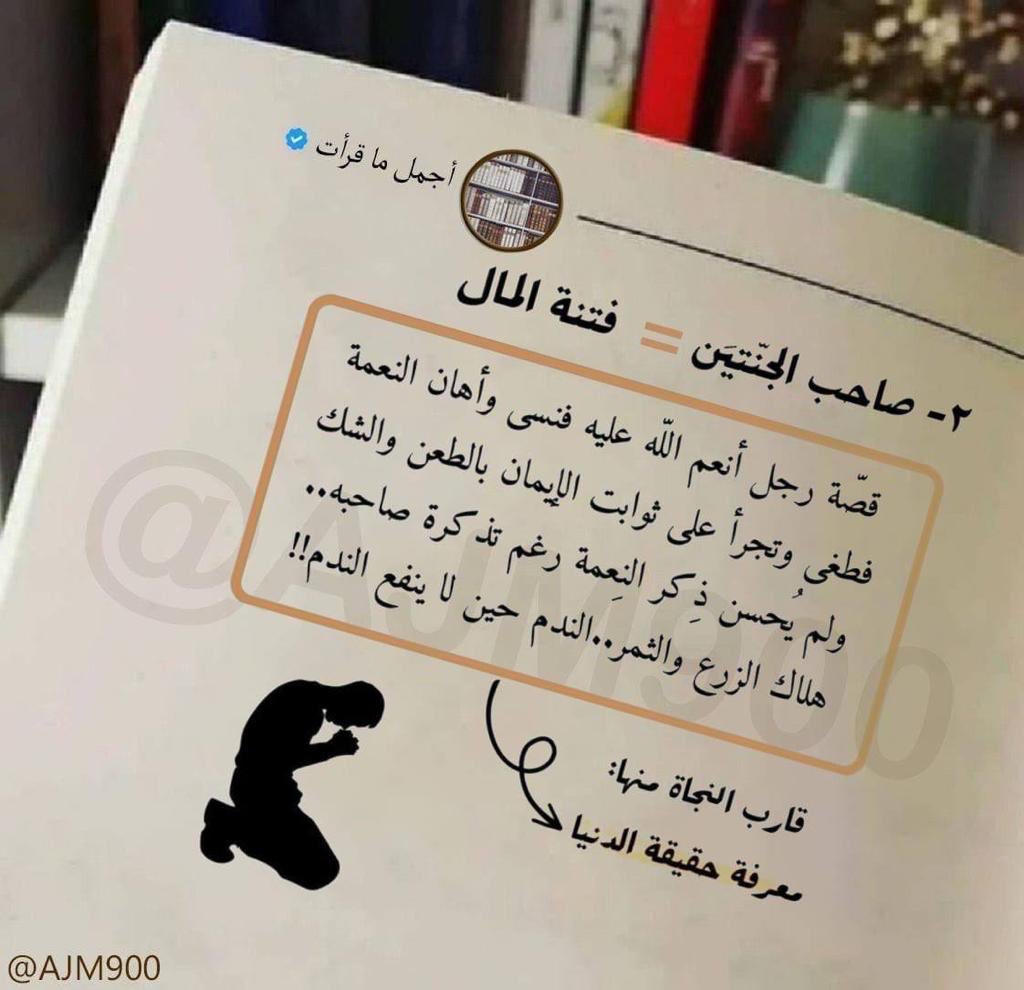 أجمل ما قرأت
٢- صاحب الجنّتيَن = فتنة المال
قصّة رجل أنعم اللّه عليه فنسى وأهان النعمة
فطغى وتجرأ على ثوابت الإيمان بالطعن والشك
ولم يُحسن ذِكر النِعمة رغم تذكرة صاحبه..
هلاك الزرع والثمر..الندم حين لا ينفع الندم!!
قارب النجاة منها:
معرفة حقيقة الدنيا
@AJM900
@AJM900